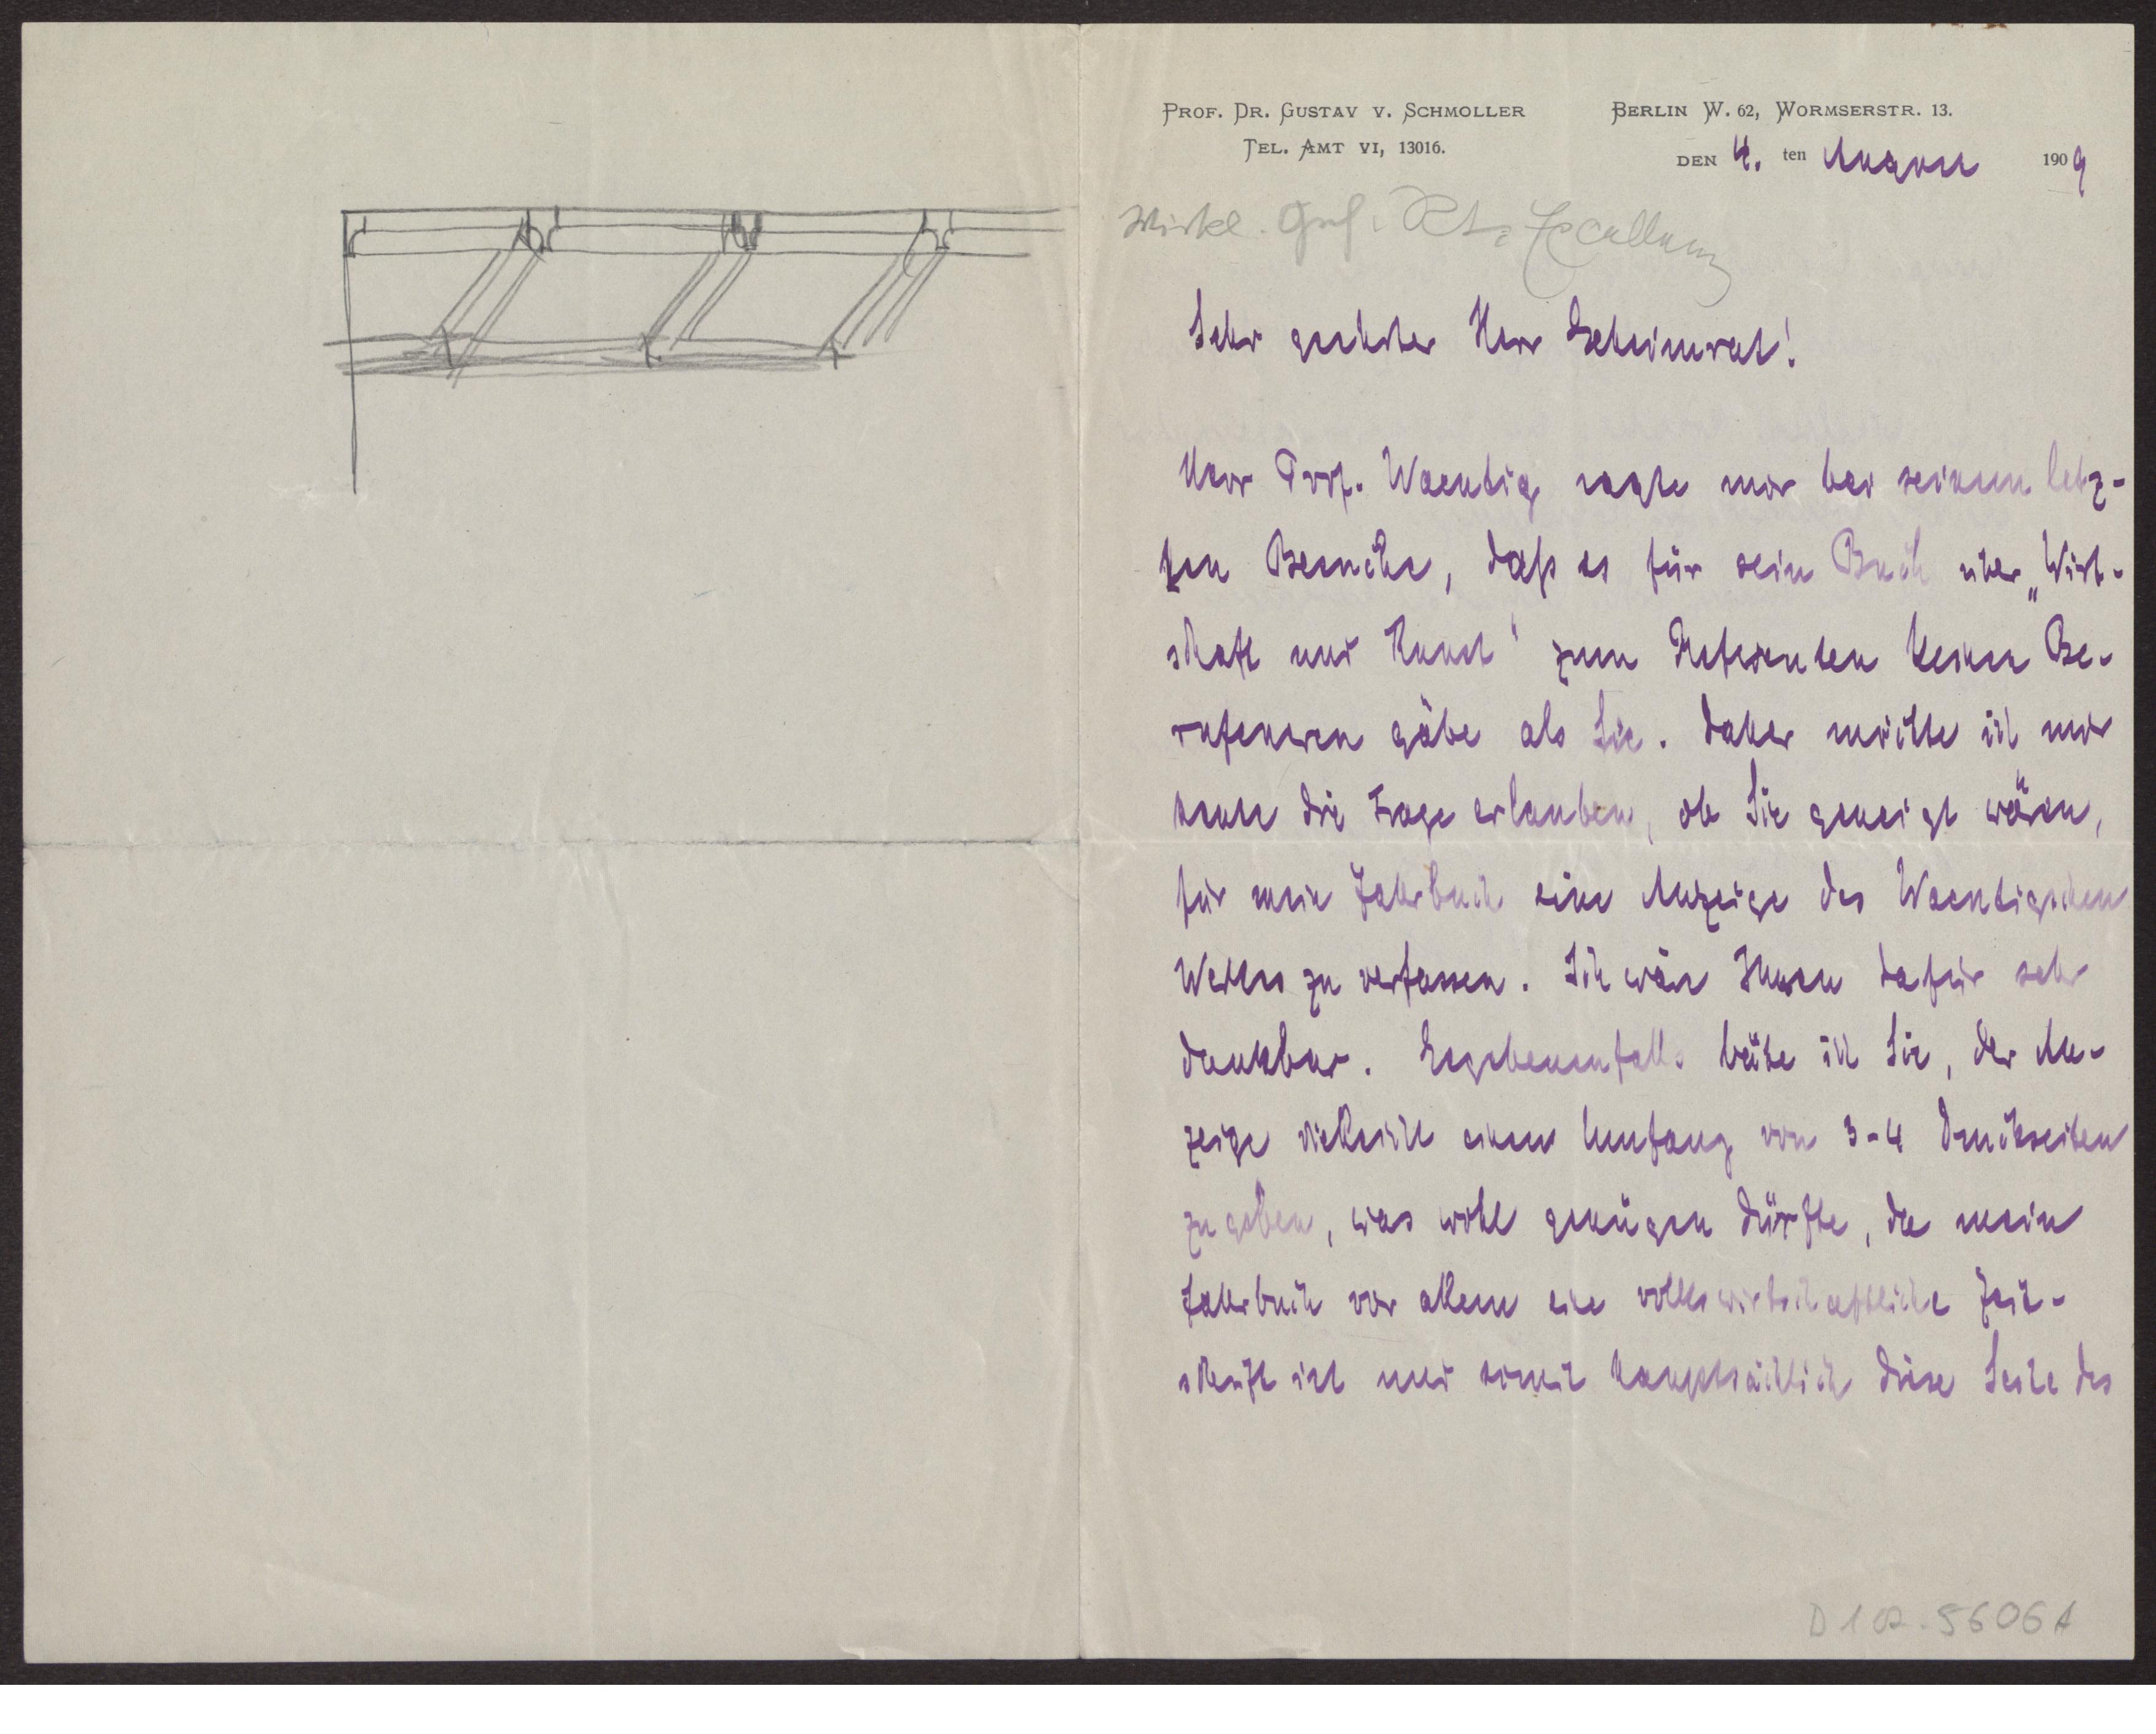 PROF. DR. GUSTAV V. SCHMOLLER
TEL. AMT VI, 13016.
BERLIN W. 62, WORMSERSTR. 13.
DEN 4. ten August 1909
Wirkl. Geh. Rt. Exzellenz
Sehr geehrter Herr Geheimrat!
Herr Prof. Waentig sagte mir bei seinem letz-
ten Besuche, daß es für sein Buch über „Wirt-
schaft und Kunst“ zum Referenten keinen Be-
rufeneren gäbe als Sie. Daher möchte ich mir
heute die Frage erlauben, ob Sie geneigt wären,
für mein Jahrbuch eine Anzeige des Waentigschen
Werkes zu verfassen. Ich wäre Ihnen dafür sehr
dankbar. Gegebenenfalls bäte ich Sie, der An-
zeige vielleicht einen Umfang von 3-4 Druckseiten
zu geben, was wohl genügen dürfte, da mein
Jahrbuch vor allem eine volkswirtschaftliche Zeit-
schrift ist und somit hauptsächlich diese Seite des
D 102.5606 A